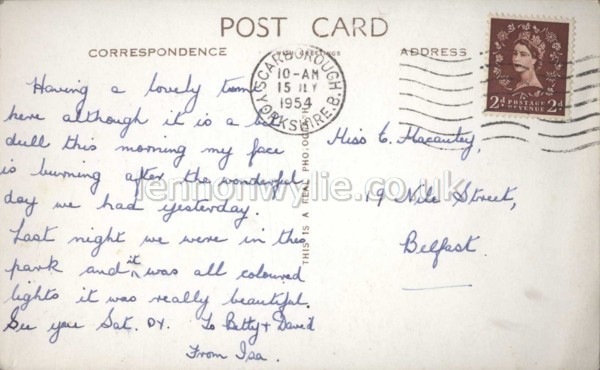 POST CARD
CORRESPONDENCE
WITH GREETINGS
ADDRESS
SCARBOROUGH
10-AM
15 JLY
1954
YORKSHIRE. B.
2d POSTAGE REVENUE 2d
Having a lovely time
here although it is a
dull this morning my face
is burning after the wonderful
day we had yesterday.
Last night we were in the
park and it was all coloured
lights it was really beautiful.
See you Sat. DV. To Betty & David
From Isa.
THIS IS A REAL PHO
Miss E. Macauley,
19 Nile Street,
Belfast.
lennonwylie.co.uk